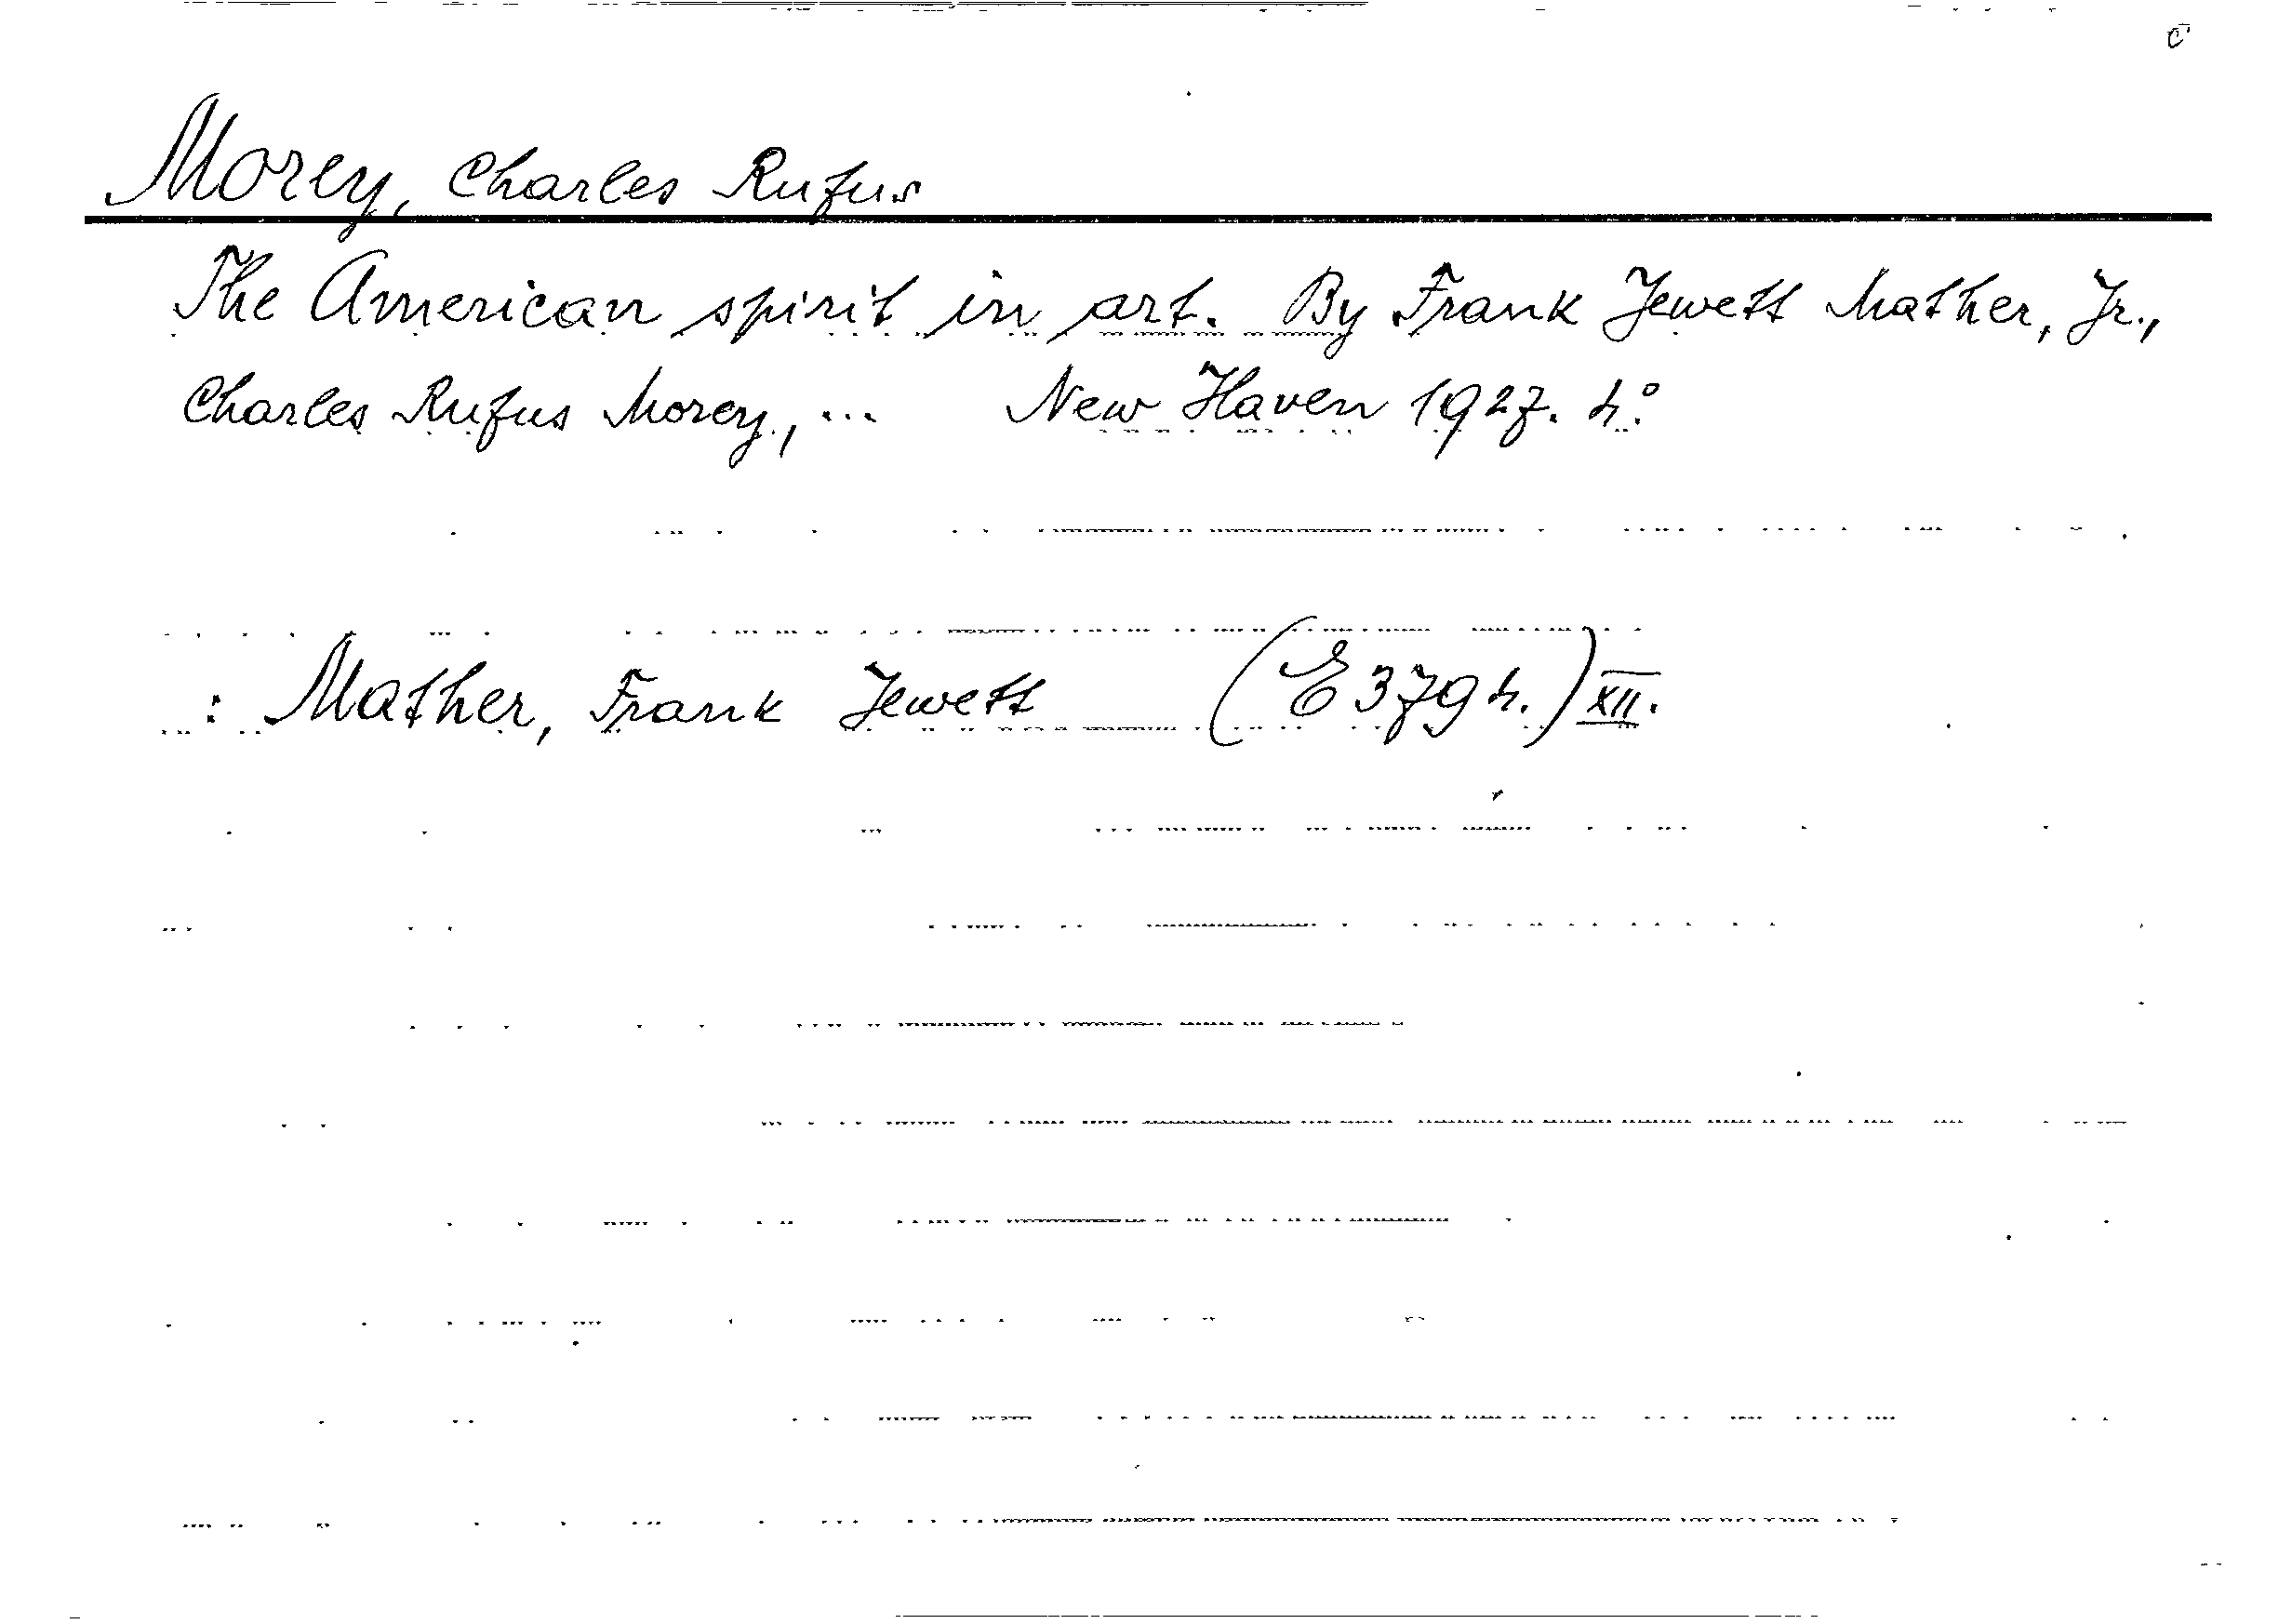 c
Morey, Charles Rufus
The American spirit in art. By Frank Jewett Mather, Jr.,
Charles Rufus Morey, ... New Haven 1927. 4°.
: Mather, Frank Jewett (E 379 4.) XII.